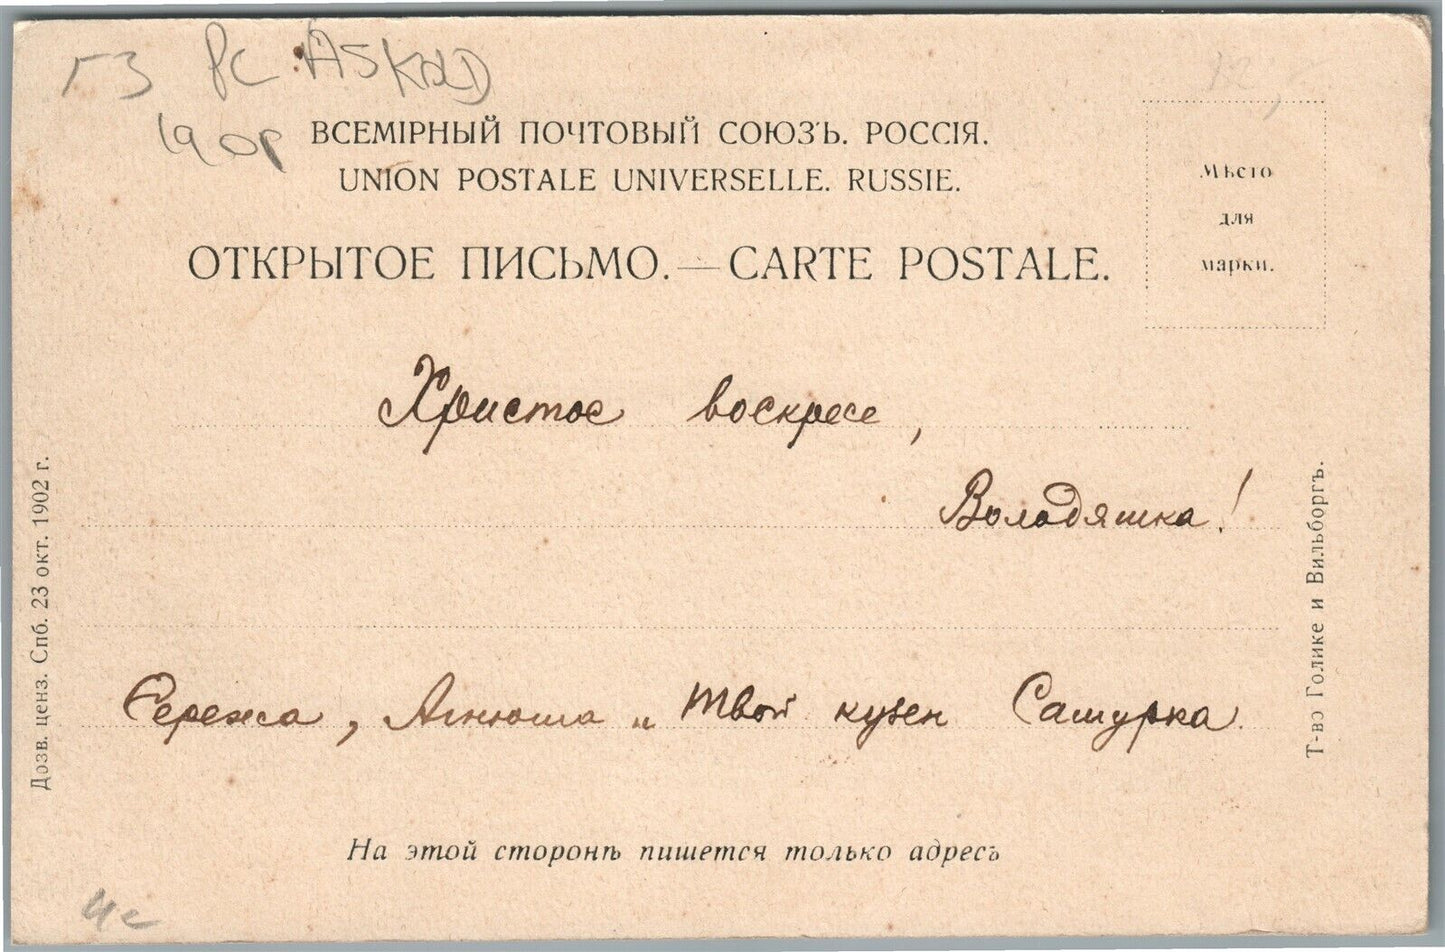 ГЗ РС ASKOLD
ВСЕМІРНЫЙ ПОЧТОВЫЙ СОЮЗЪ. РОССІЯ.
UNION POSTALE UNIVERSELLE. RUSSIE.
ОТКРЫТОЕ ПИСЬМО.—CARTE POSTALE.
Мѣсто
для
марки.
Христос воскресе,
Володяшка!
Сережа, Агнюша и твой кузен Сашурка.
На этой сторонѣ пишется только адресъ
Дозв. ценз. Спб. 23 окт. 1902 г.
Т-во Голике и Вильборгъ.